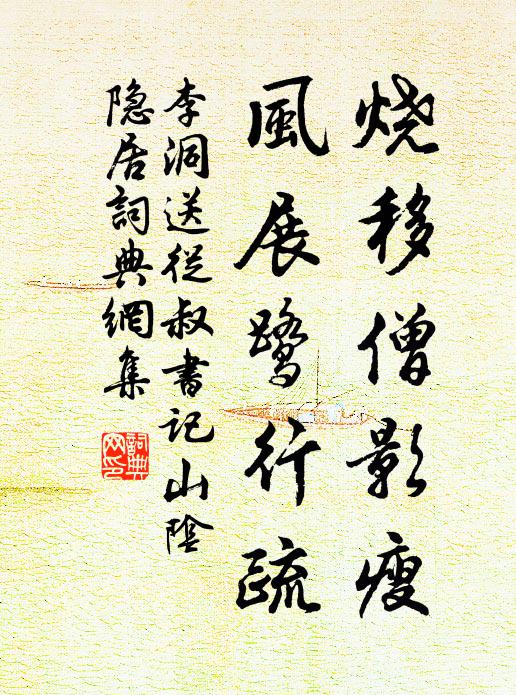 烧移僧影瘦
風展鹭行疏
李洞送從叔書记山陰
隐居詞典網集
詞典网印